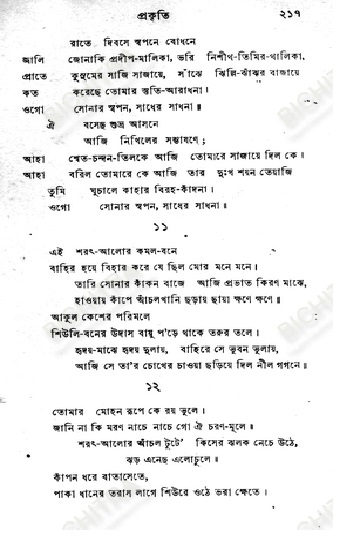 প্রকৃতি ২১৭
রাতে দিবসে স্বপনে বোধনে
জ্বালি জোনাকি প্রদীপ-মালিকা, ভরি নিশীথ-তিমির-থালিকা,
প্রাতে কুসুমের সাজি সাজায়ে, সাঁঝে ঝিল্লি-ঝাঁঝর বাজায়ে
কত করেছে তোমার স্তুতি-আরাধনা।
ওগো সোনার স্বপন, সাধের সাধনা॥
ঐ বসেছ শুভ্র আসনে
আজি নিখিলের সম্ভাষণে;
আহা শ্বেত-চন্দন-তিলকে আজি তোমারে সাজায়ে দিল কে।
আহা বরিল তোমারে কে আজি তার দুঃখ শয়ন তেয়াজি
তুমি ঘুচালে কাহার বিরহ-কাঁদনা।
ওগো সোনার স্বপন, সাধের সাধনা।
১১
এই শরৎ-আলোর কমল-বনে
বাহির হয়ে বিহার করে যে ছিল মোর মনে মনে।
তারি সোনার কাঁকন বাজে আজি প্রভাত কিরণ মাঝে,
হাওয়ায় কাঁপে আঁচলখানি ছড়ায় ছায়া ক্ষণে ক্ষণে॥
আকুল কেশের পরিমলে
শিউলি-বনের উদাস বায়ু প'ড়ে থাকে তরুর তলে।
হৃদয়-মাঝে হৃদয় দুলায়, বাহিরে সে ভুবন ভুলায়,
আজি সে তা'র চোখের চাওয়া ছড়িয়ে দিল নীল গগনে॥
১২
তোমার মোহন রূপে কে রয় ভুলে।
জানি না কি মরণ নাচে নাচে গো ঐ চরণ-মূলে॥
শরৎ-আলোর আঁচল টুটে' কিসের ঝলক নেচে উঠে,
ঝড় এনেছ এলোচুলে॥
কাঁপন ধরে বাতাসেতে,
পাকা ধানের তরাস লাগে শিউরে ওঠে ভরা ক্ষেতে।